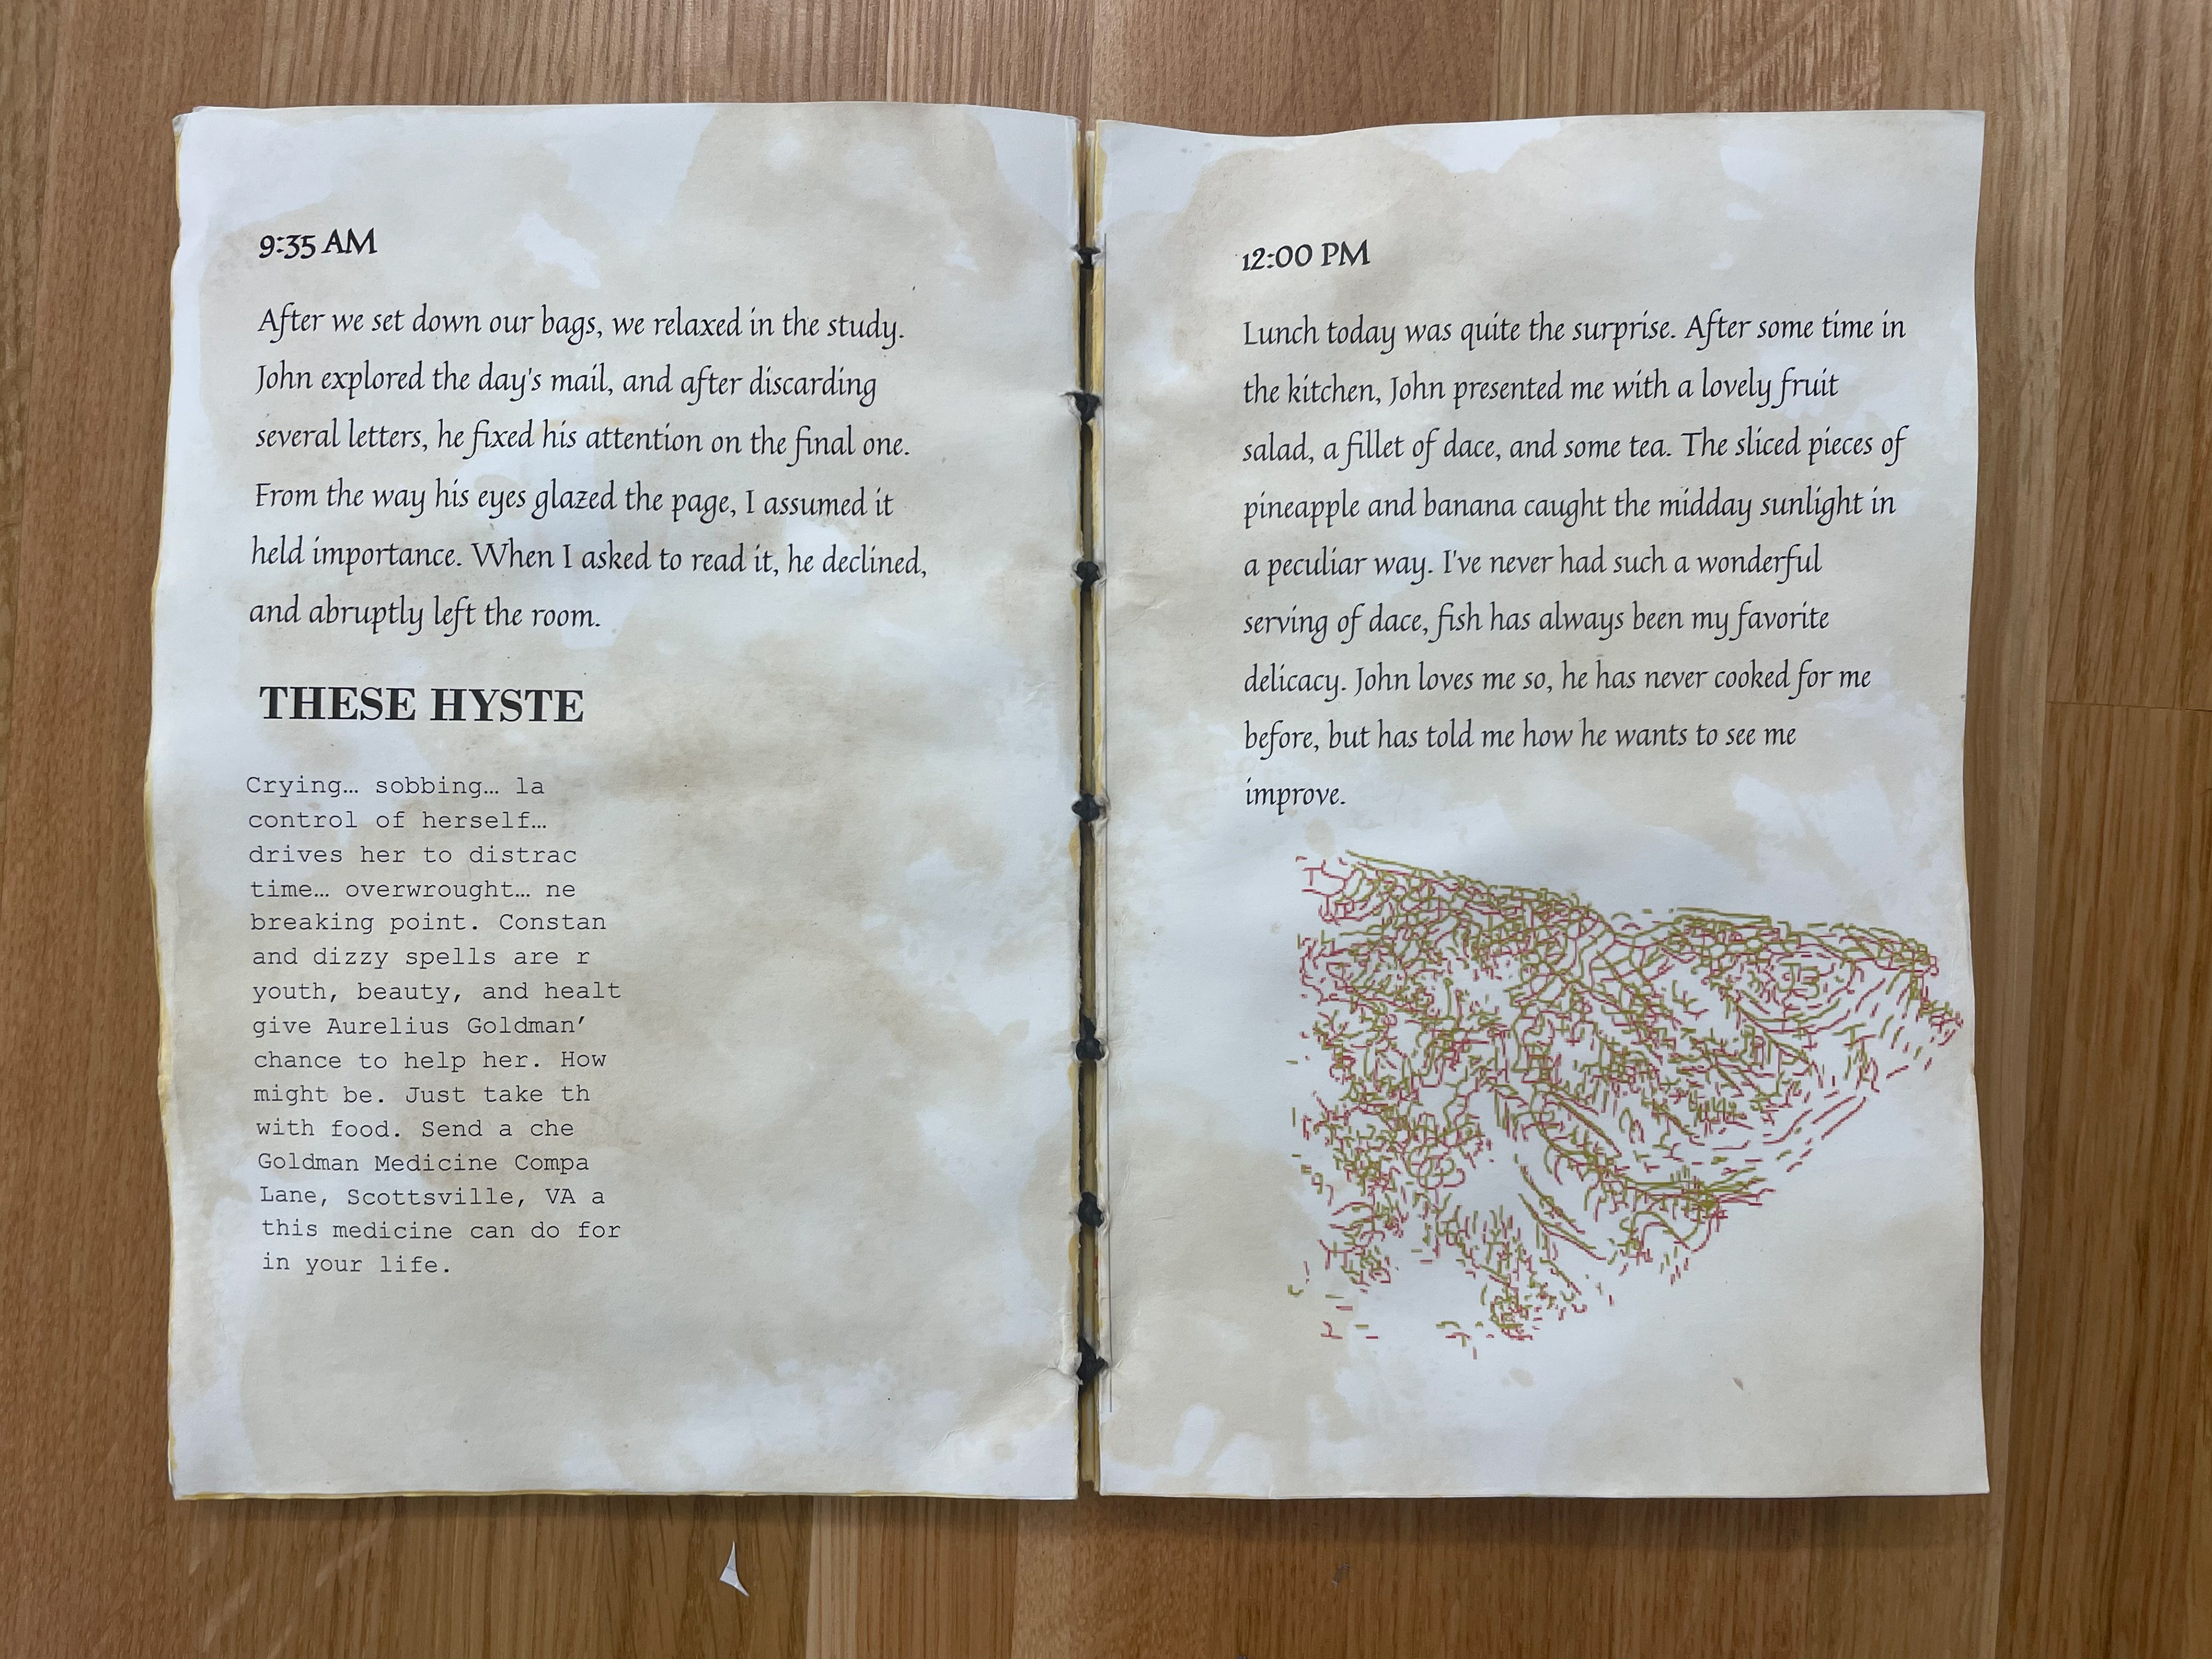 9:35 AM
After we set down our bags, we relaxed in the study.
John explored the day's mail, and after discarding
several letters, he fixed his attention on the final one.
From the way his eyes glazed the page, I assumed it
held importance. When I asked to read it, he declined,
and abruptly left the room.
THESE HYSTE
Crying… sobbing… la
control of herself…
drives her to distrac
time… overwrought… ne
breaking point. Constan
and dizzy spells are r
youth, beauty, and healt
give Aurelius Goldman’
chance to help her. How
might be. Just take th
with food. Send a che
Goldman Medicine Compa
Lane, Scottsville, VA a
this medicine can do for
in your life.
12:00 PM
Lunch today was quite the surprise. After some time in
the kitchen, John presented me with a lovely fruit
salad, a fillet of dace, and some tea. The sliced pieces of
pineapple and banana caught the midday sunlight in
a peculiar way. I've never had such a wonderful
serving of dace, fish has always been my favorite
delicacy. John loves me so, he has never cooked for me
before, but has told me how he wants to see me
improve.